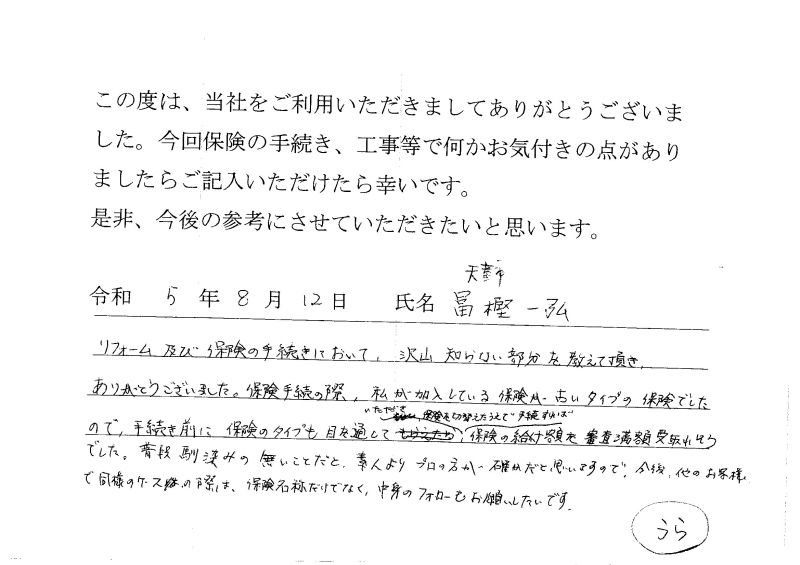 この度は、当社をご利用いただきましてありがとうございま
した。今回保険の手続き、工事等で何かお気付きの点があり
ましたらご記入いただけたら幸いです。
是非、今後の参考にさせていただきたいと思います。
天童市
令和 5 年 8 月 12 日 氏名 冨樫 一弘
リフォーム及び保険の手続きにおいて、沢山知らない部分を教えて頂き、
ありがとうございました。保険手続の際、私が加入している保険が古いタイプの保険でした
いただき 保険を切替えたうえで手続すれば
ので、手続き前に保険のタイプも目を通して、保険の給付額も審査満額受取れそう
でした。普段馴染みの無いことだと、素人よりプロの方が確かだと思いますので、今後、他のお客様
で同様のケースの際は、保険名称だけでなく、中身のフォローもお願いしたいです。
うら